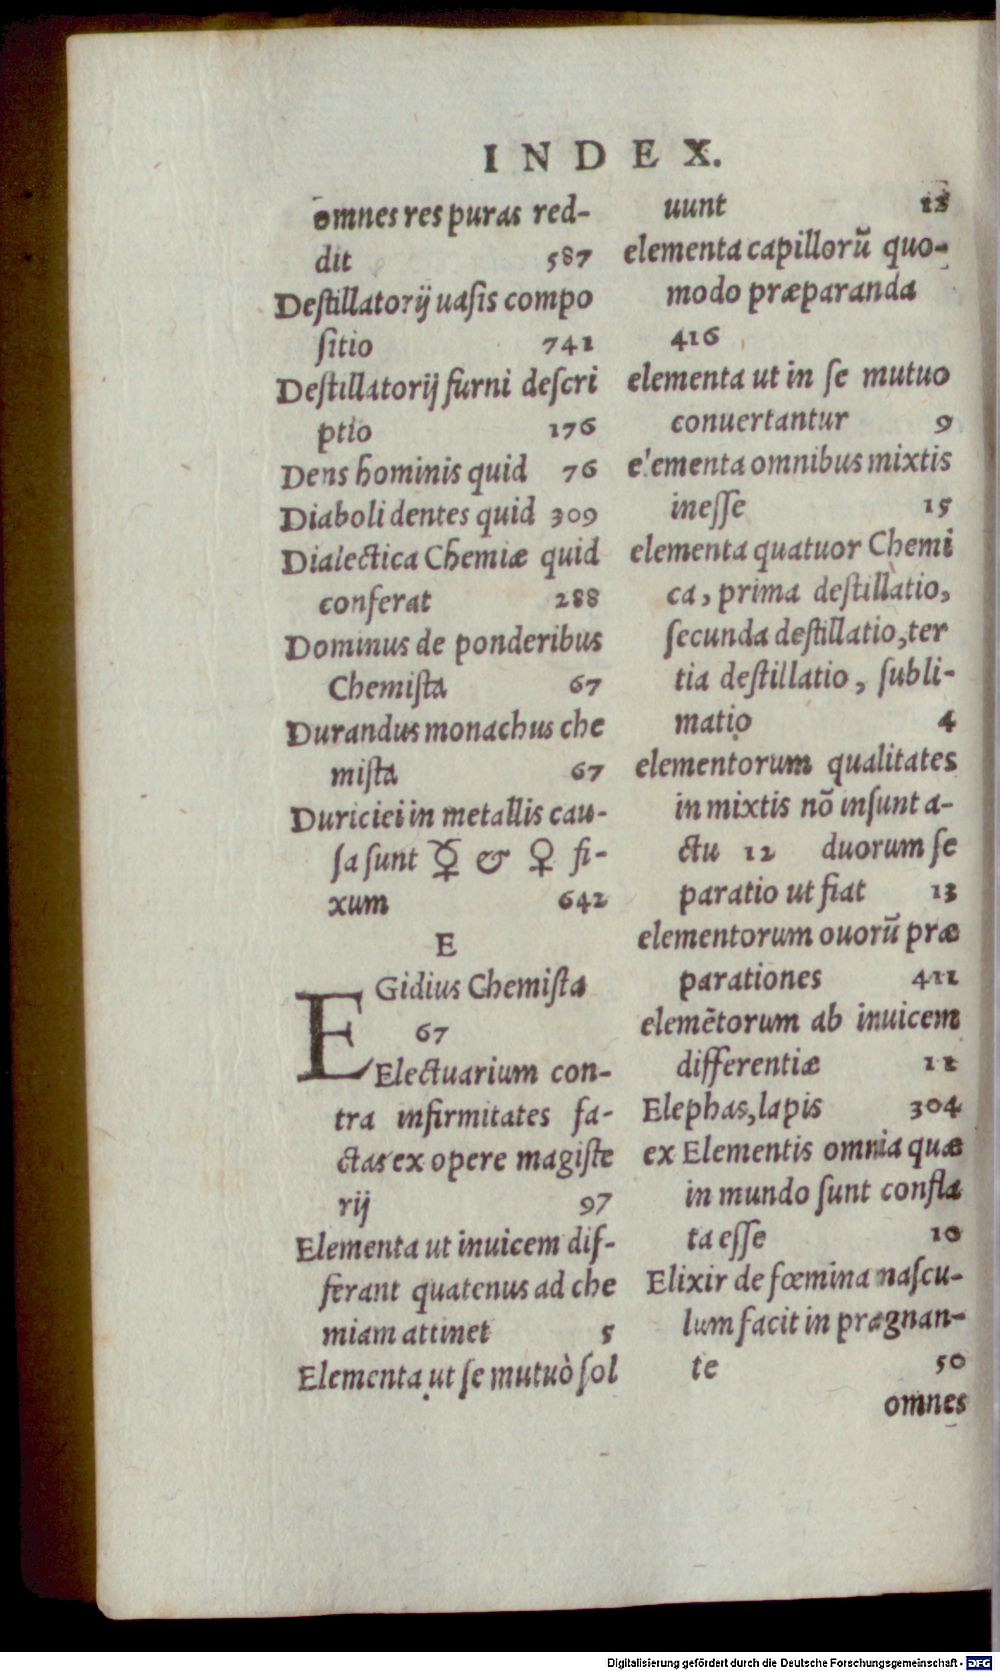 INDEX.
omnes res puras red-
dit 587
Deſtillatorij uaſis compo
ſitio 741
Deſtillatorij furni deſcri
ptio 176
Dens hominis quid 76
Diaboli dentes quid 309
Dialectica Chemiæ quid
conferat 288
Dominus de ponderibus
Chemiſta 67
Durandus monachus che
miſta 67
Duriciei in metallis cau-
ſa ſunt ☿ & ♀ fi-
xum 642
E
EGidius Chemiſta
67
Electuarium con-
tra infirmitates fa-
ctas ex opere magiſte
rij 97
Elementa ut inuicem dif-
ferant quatenus ad che
miam attinet 5
Elementa ut ſe mutuò ſol
uunt 12
elementa capillorũ quo-
modo præparanda
416
elementa ut in ſe mutuo
conuertantur 9
elementa omnibus mixtis
ineſſe 15
elementa quatuor Chemi
ca, prima deſtillatio,
ſecunda deſtillatio, ter
tia deſtillatio, ſubli-
matio 4
elementorum qualitates
in mixtis nõ inſunt a-
ctu 12 duorum ſe
paratio ut fiat 13
elementorum ouorũ præ
parationes 411
elemẽtorum ab inuicem
differentiæ 11
Elephas, lapis 304
ex Elementis omnia quæ
in mundo ſunt confla
ta eſſe 10
Elixir de fœmina naſcu-
lum facit in prægnan-
te 50
omnes
Digitalisierung gefördert durch die Deutsche Forschungsgemeinschaft - DFG